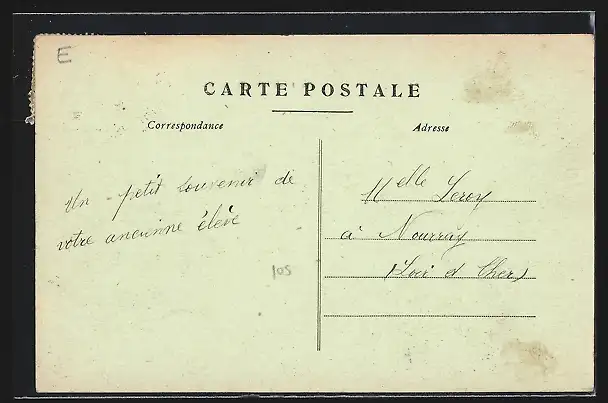 E
CARTE POSTALE
Correspondance
Adresse
Un petit souvenir de
votre ancienne élève
105
Melle Leroy
à Nourray
(Loir et Cher)